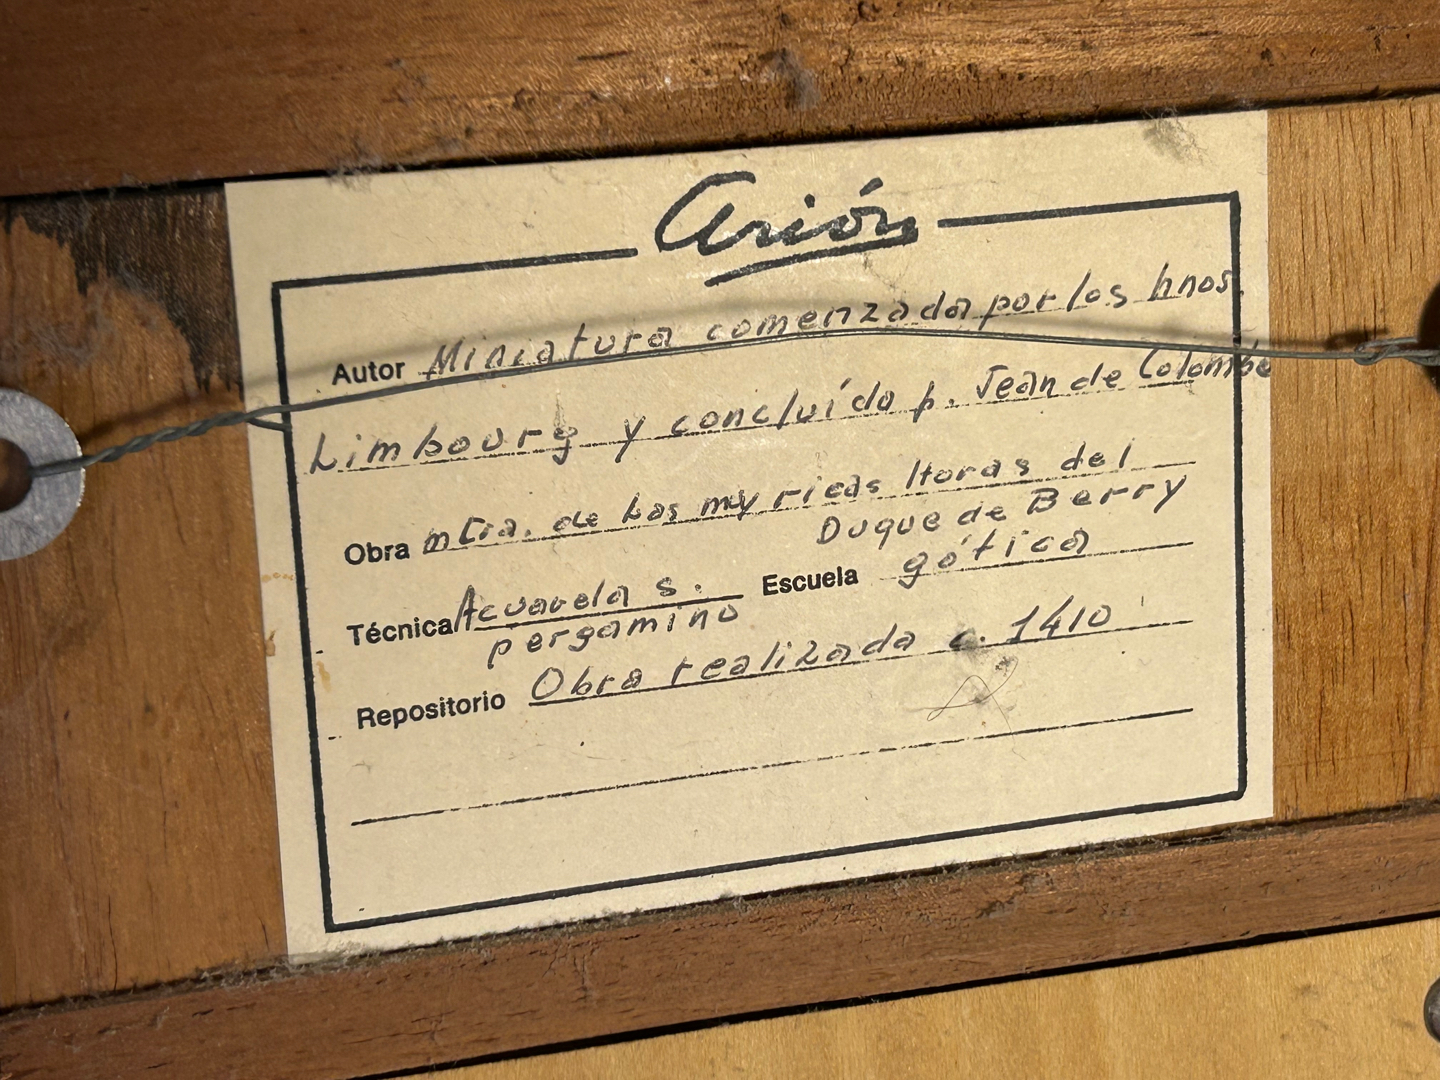 Arión
Autor Miniatura comenzada por los hnos.
Limbourg y concluído p. Jean de Colombe
Obra mtra. de Las muy ricas Horas del
Duque de Berry
Técnica Acuarela s. Escuela gótica
pergamino
Repositorio Obra realizada c. 1410